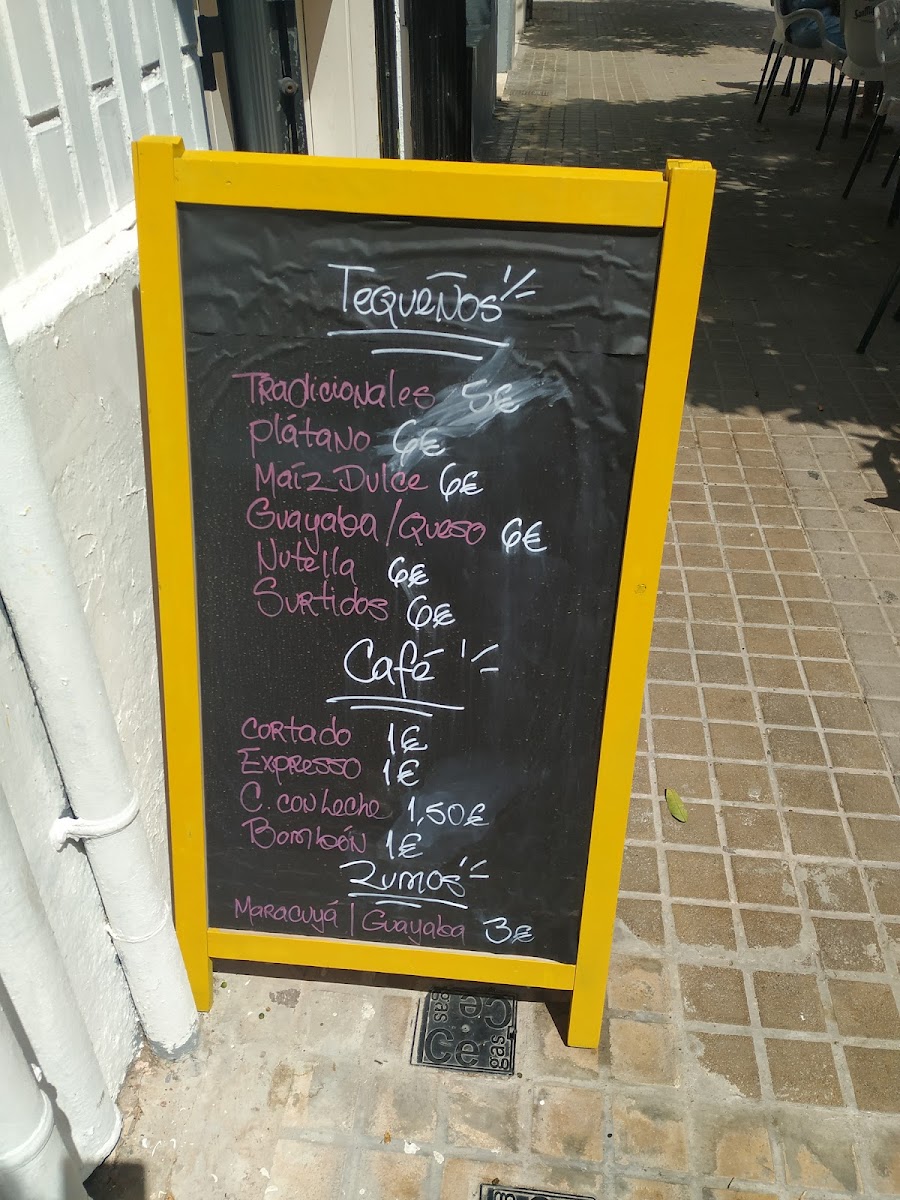 TEQUEÑOS
TRADICIONALES 5€
Plátano 6€
Maíz Dulce 6€
Guayaba / Queso 6€
Nutella 6€
Surtidos 6€
Café
Cortado 1€
Expresso 1€
C. con Leche 1,50€
Bombón 1€
Zumos
Maracuyá | Guayaba 3€
gas
Ce
Ce
gas